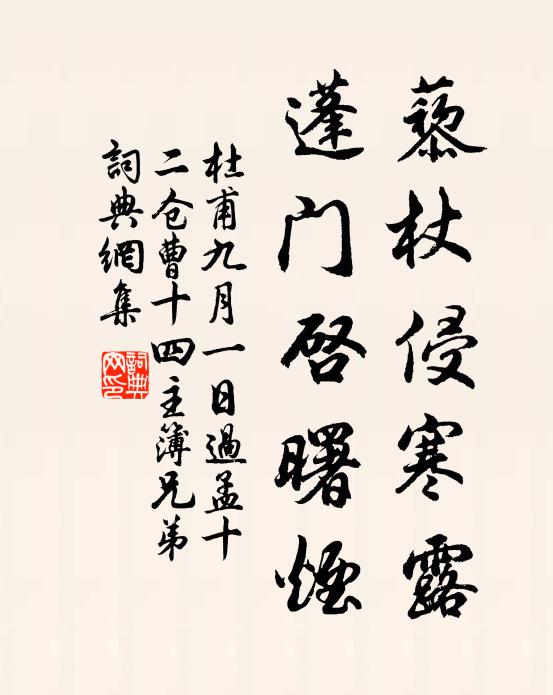 藜杖侵寒露
蓬门启曙烟
杜甫九月一日過孟十
二仓曹十四主簿兄弟
詞典網集
詞典网印